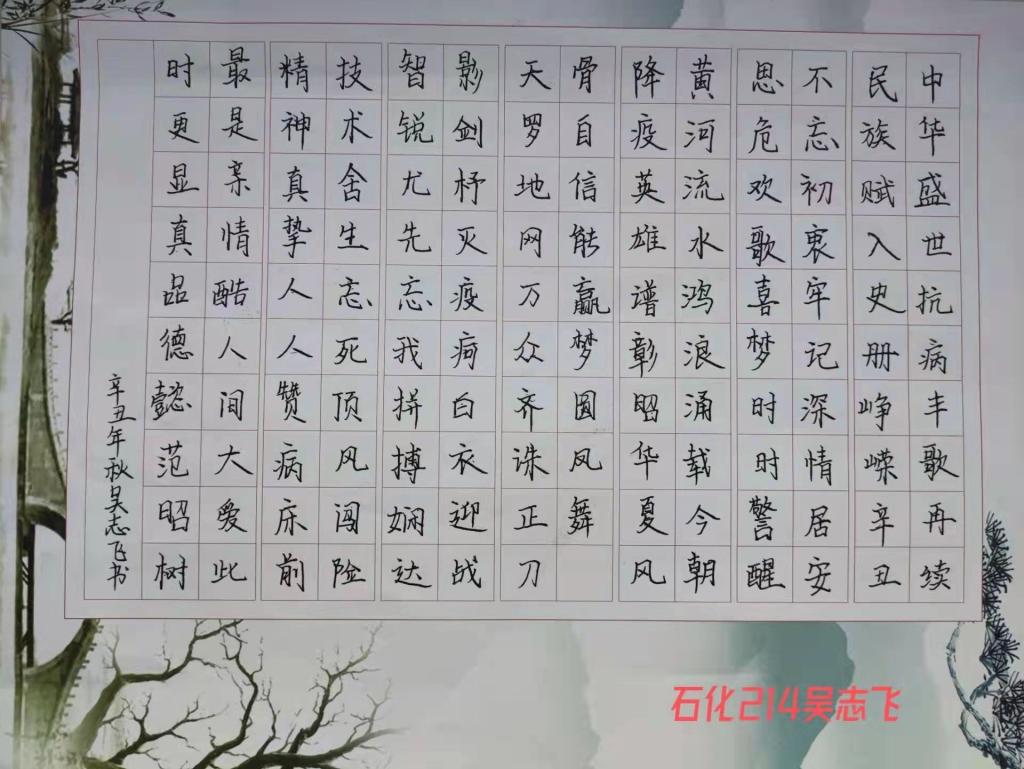 中华盛世抗病丰歌再续
民族赋入史册峥嵘辛丑
不忘初衷牢记深情居安
思危欢歌喜梦时时警醒
黄河流水鸿浪涌载今朝
降疫英雄谱彰昭华夏风
骨自信能赢梦圆凤舞
天罗地网万众齐诛正刀
影剑杼灭疫疴白衣迎战
智锐尤先忘我拼搏娴达
技术舍生忘死顶风闯险
精神真挚人人赞病床前
最是亲情酷人间大爱此
时更显真品德懿范昭树
辛丑年秋吴志飞书
石化214吴志飞